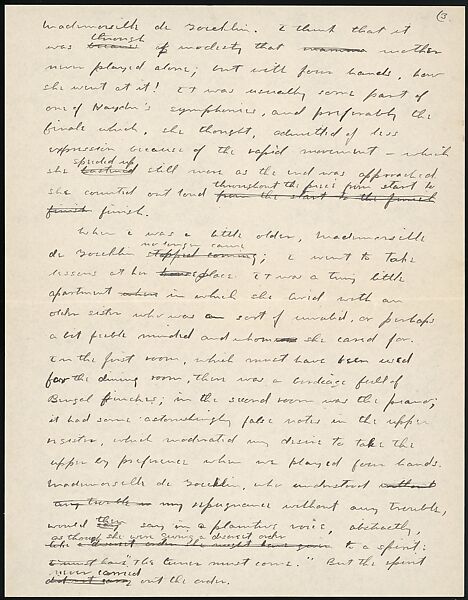 (3
Mademoiselle de Gocklin. I think that it
through
was because of modesty that mamma mother
never played alone; but with four hands, how
she went at it! It was usually some part of
one of Haydn's symphonies, and preferably the
finale which, she thought, admitted of less
expression because of the rapid movement – which
speeded up
she hastened still more as the end was approached.
throughout the piece from start to
she counted out loud from the start to the finish
finish finish.
When I was a little older, Mademoiselle
no longer came
de Gocklin stopped coming; I went to take
lessons at her house place. It was a tiny little
apartment where in which she lived with an
older sister who was a sort of invalid, or perhaps
a bit feeble minded and whom she cared for.
In the first room, which must have been used
for the dining room, there was a birdcage full of
Bengal finches; in the second room was the piano;
it had some astonishingly false notes in the upper
register, which moderated my desire to take the
upper by preference when we played four hands.
Mademoiselle de Gocklin, who understood without
any trouble my repugnance without any trouble,
would then say in a plaintive voice, abstractly,
as though she were giving a discreet order
like a discreet order she might have given to a spirit:
"The tuner must come." But the spirit
never carried
did not carry out the order.